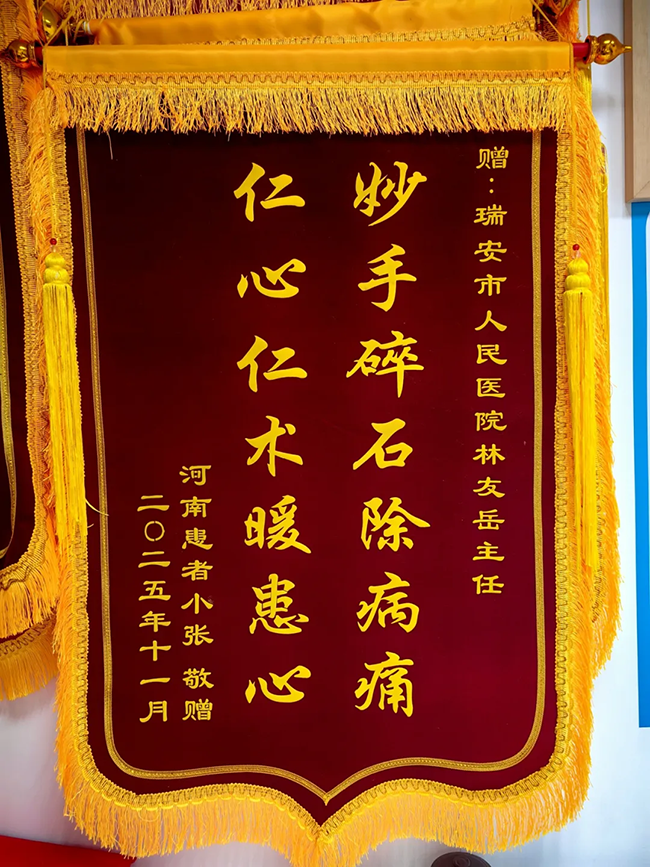 赠：瑞安市人民医院林友岳主任
妙手碎石除病痛
仁心仁术暖患心
河南患者小张 敬赠
二〇二五年十一月